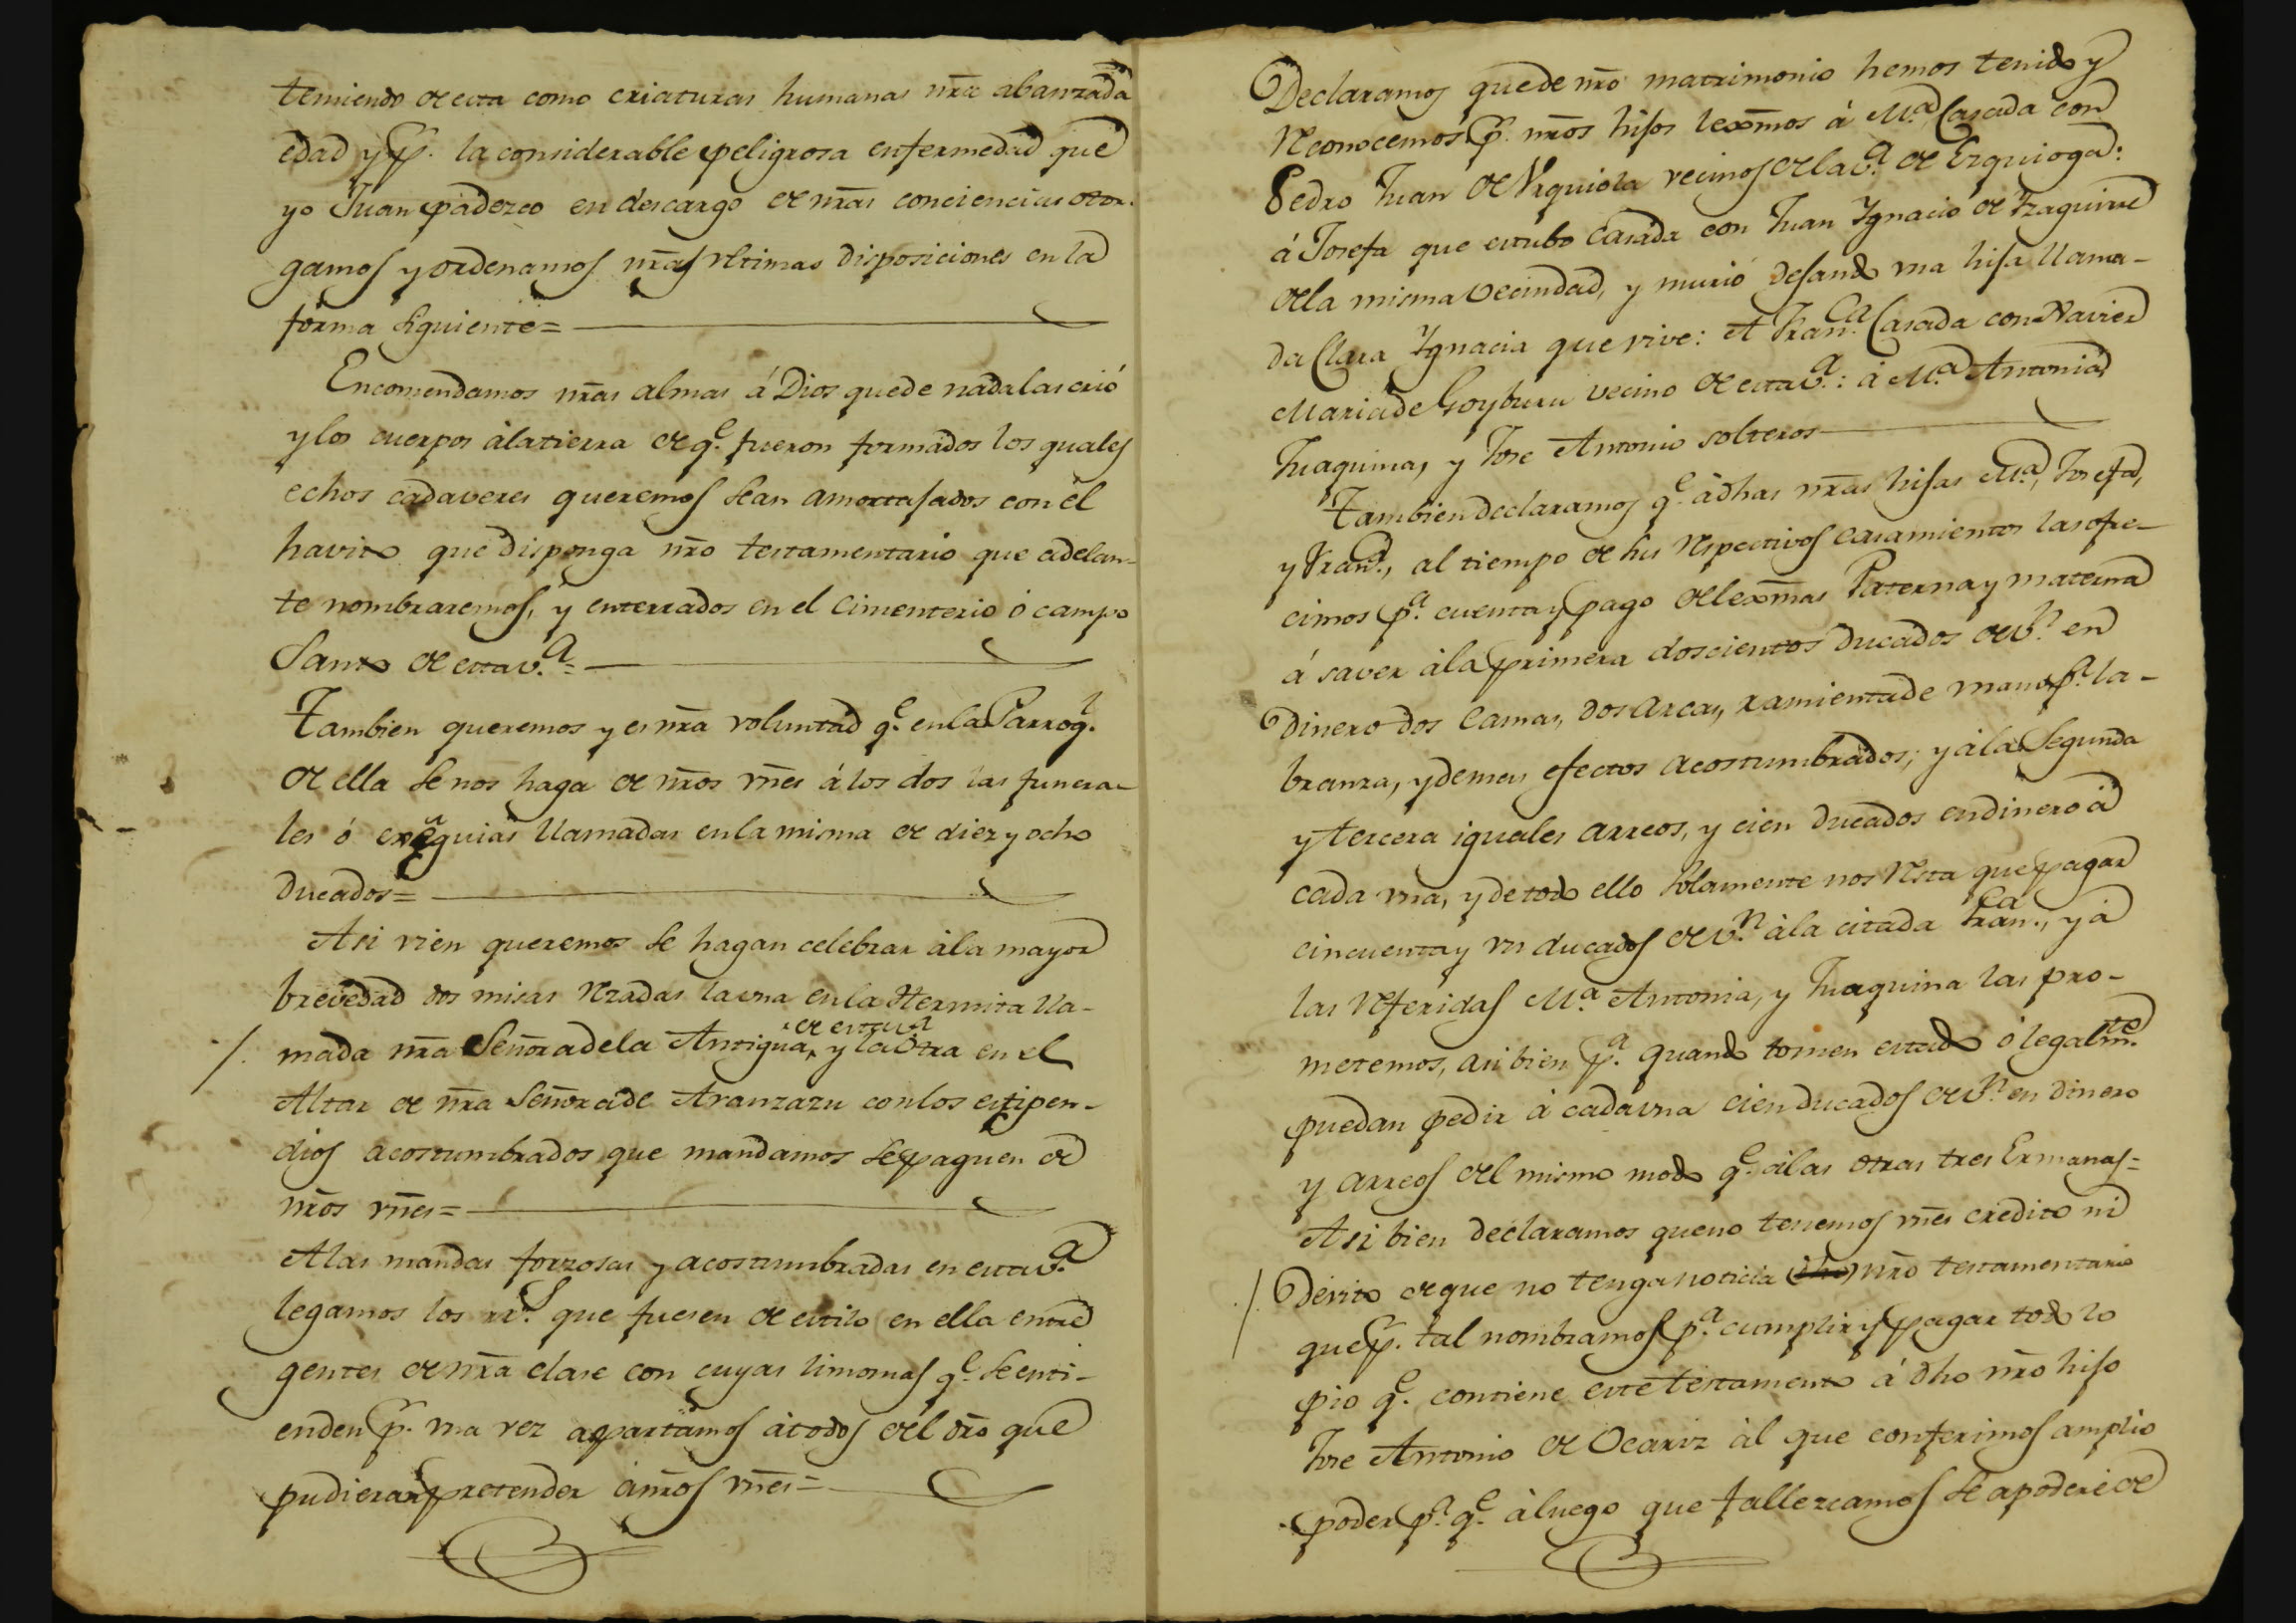 temiendo de esta como criaturas humanas nr̃a abanzada
edad y p.r la considerable peligrosa enfermedad que
yo Juan padezco en descargo de nr̃as conciencias otor-
gamos y ordenamos nr̃as vltimas disposiciones en la
forma siguiente=
Encomendamos nr̃as almas á Dios que de nada las crió
y los cuerpos à la tierra de q.e fueron formados los quales
echos cadaveres queremos sean amortajados con el
havito que disponga nr̃o testamentario que adelan-
te nombraremos, y enterrados en el Cimenterio ó campo
Santo de esta v.a=
Tambien queremos y es nr̃a voluntad q.e en la Parroq.l
de ella se nos haga de nr̃os vñes á los dos las funera-
les ó exequias llamadas en la misma de diez y ocho
ducados=
Asi vien queremos se hagan celebrar à la mayor
brevedad dos misas rezadas la vna en la Hermita lla-
mada nr̃a Señora de la Antigua, de esta v.a y la otra en el
Altar de nr̃a Señora de Aranzazu con los estipen-
dios acostumbrados que mandamos se paguen de
nr̃os vñes=
A las mandas forzosas y acostumbradas en esta v.a
legamos los rr.s que fuesen de estilo en ella entre
gentes de nr̃a clase con cuyas limosnas q.e se enti-
enden p.r vna vez apartamos à todos del dr̃o que
pudieran pretender à nr̃os vñes=
Declaramos que de nr̃o matrimonio hemos tenido y
reconocemos p.r nr̃os hijos lexm̃os á M.a Casada con
Pedro Juan de Vrquiola vecinos de la v.a de Ezquioga:
á Josefa que estubo Casada con Juan Ygnacio de Yzaguirre
de la misma vecindad, y murió dejando vna hija llama-
da Clara Ygnacia que vive: A Fran.ca Casada con Xavier
Maria de Goyburu vecino de esta v.a: à M.a Antonia,
Juaquina, y Jose Antonio solteros
Tambien declaramos q.e à dhas nr̃as hijas M.a, Josefa,
y Fran.ca, al tiempo de sus respectivos casamientos las ofre-
cimos p.a cuenta y pago de lexm̃as Paterna y materna
á saver à la primera doscientos ducados de v.n en
Dinero dos Camas, dos arcas, ramienta de mano p.a la-
branza, y demas efectos acostumbrados; y à la Segunda
y tercera iguales arreos, y cien ducados en dinero à
cada vna, y de todo ello solamente nos resta que pagar
cincuenta y vn ducados de v.n à la citada Fran.ca, y à
las referidas M.a Antonia, y Juaquina las pro-
metemos, asi bien p.a quando tomen estado ó legalm.te
puedan pedir à cada vna cien ducados de v.n en dinero
y arreos del mismo modo q.e à las otras tres Ermanas=
Asi bien declaramos que no tenemos mẽs credito ni
Devito de que no tenga noticia dho nr̃o testamentario
que p.r tal nombramos p.a cumplir y pagar todo lo
pio q.e contiene este testamento á dho nr̃o hijo
Jose Antonio de Ocariz àl que conferimos amplio
poder p.a q.e à luego que fallezcamos se apodere de